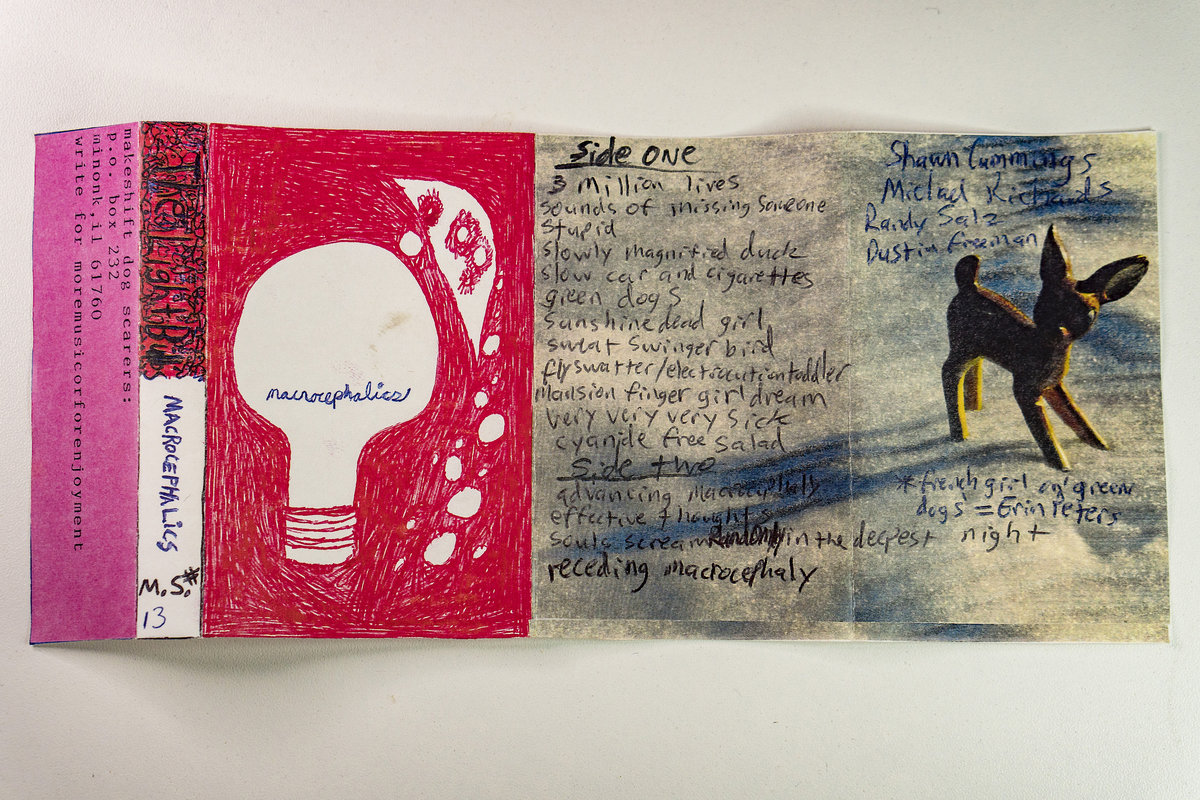 makeshift dog scarers:
p.o. box 232
minonk,il 61760
write for moremusicorforenjoyment
The Light Bulbs
MACROCEPHALICS
M.S.#
13
macrocephalics
Side one
3 million lives
sounds of missing someone
stupid
slowly magnified duck
slow car and cigarettes
green dogs
sunshine dead girl
sweat swinger bird
flyswatter/electrocutiontoddler
mansion finger girl dream
very very very sick
cyanide free salad
Side two
advancing macrocephaly
effective thoughts
souls scream Randomly in the deepest night
receding macrocephaly
Shawn Cummings
Richards
Randy Salz
Dustin Freeman
*french girl on green
dogs = Erin Peters